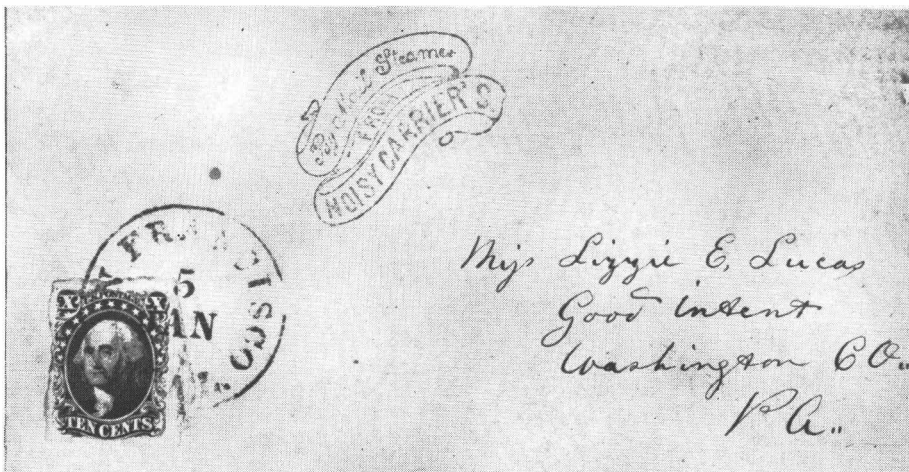 Pr Mail Steamer
FROM
NOISY CARRIER'S
FRANCISCO
5
JAN
X X
TEN CENTS
Miss Lizzie E. Lucas
Good intent
Washington CO..
PA..